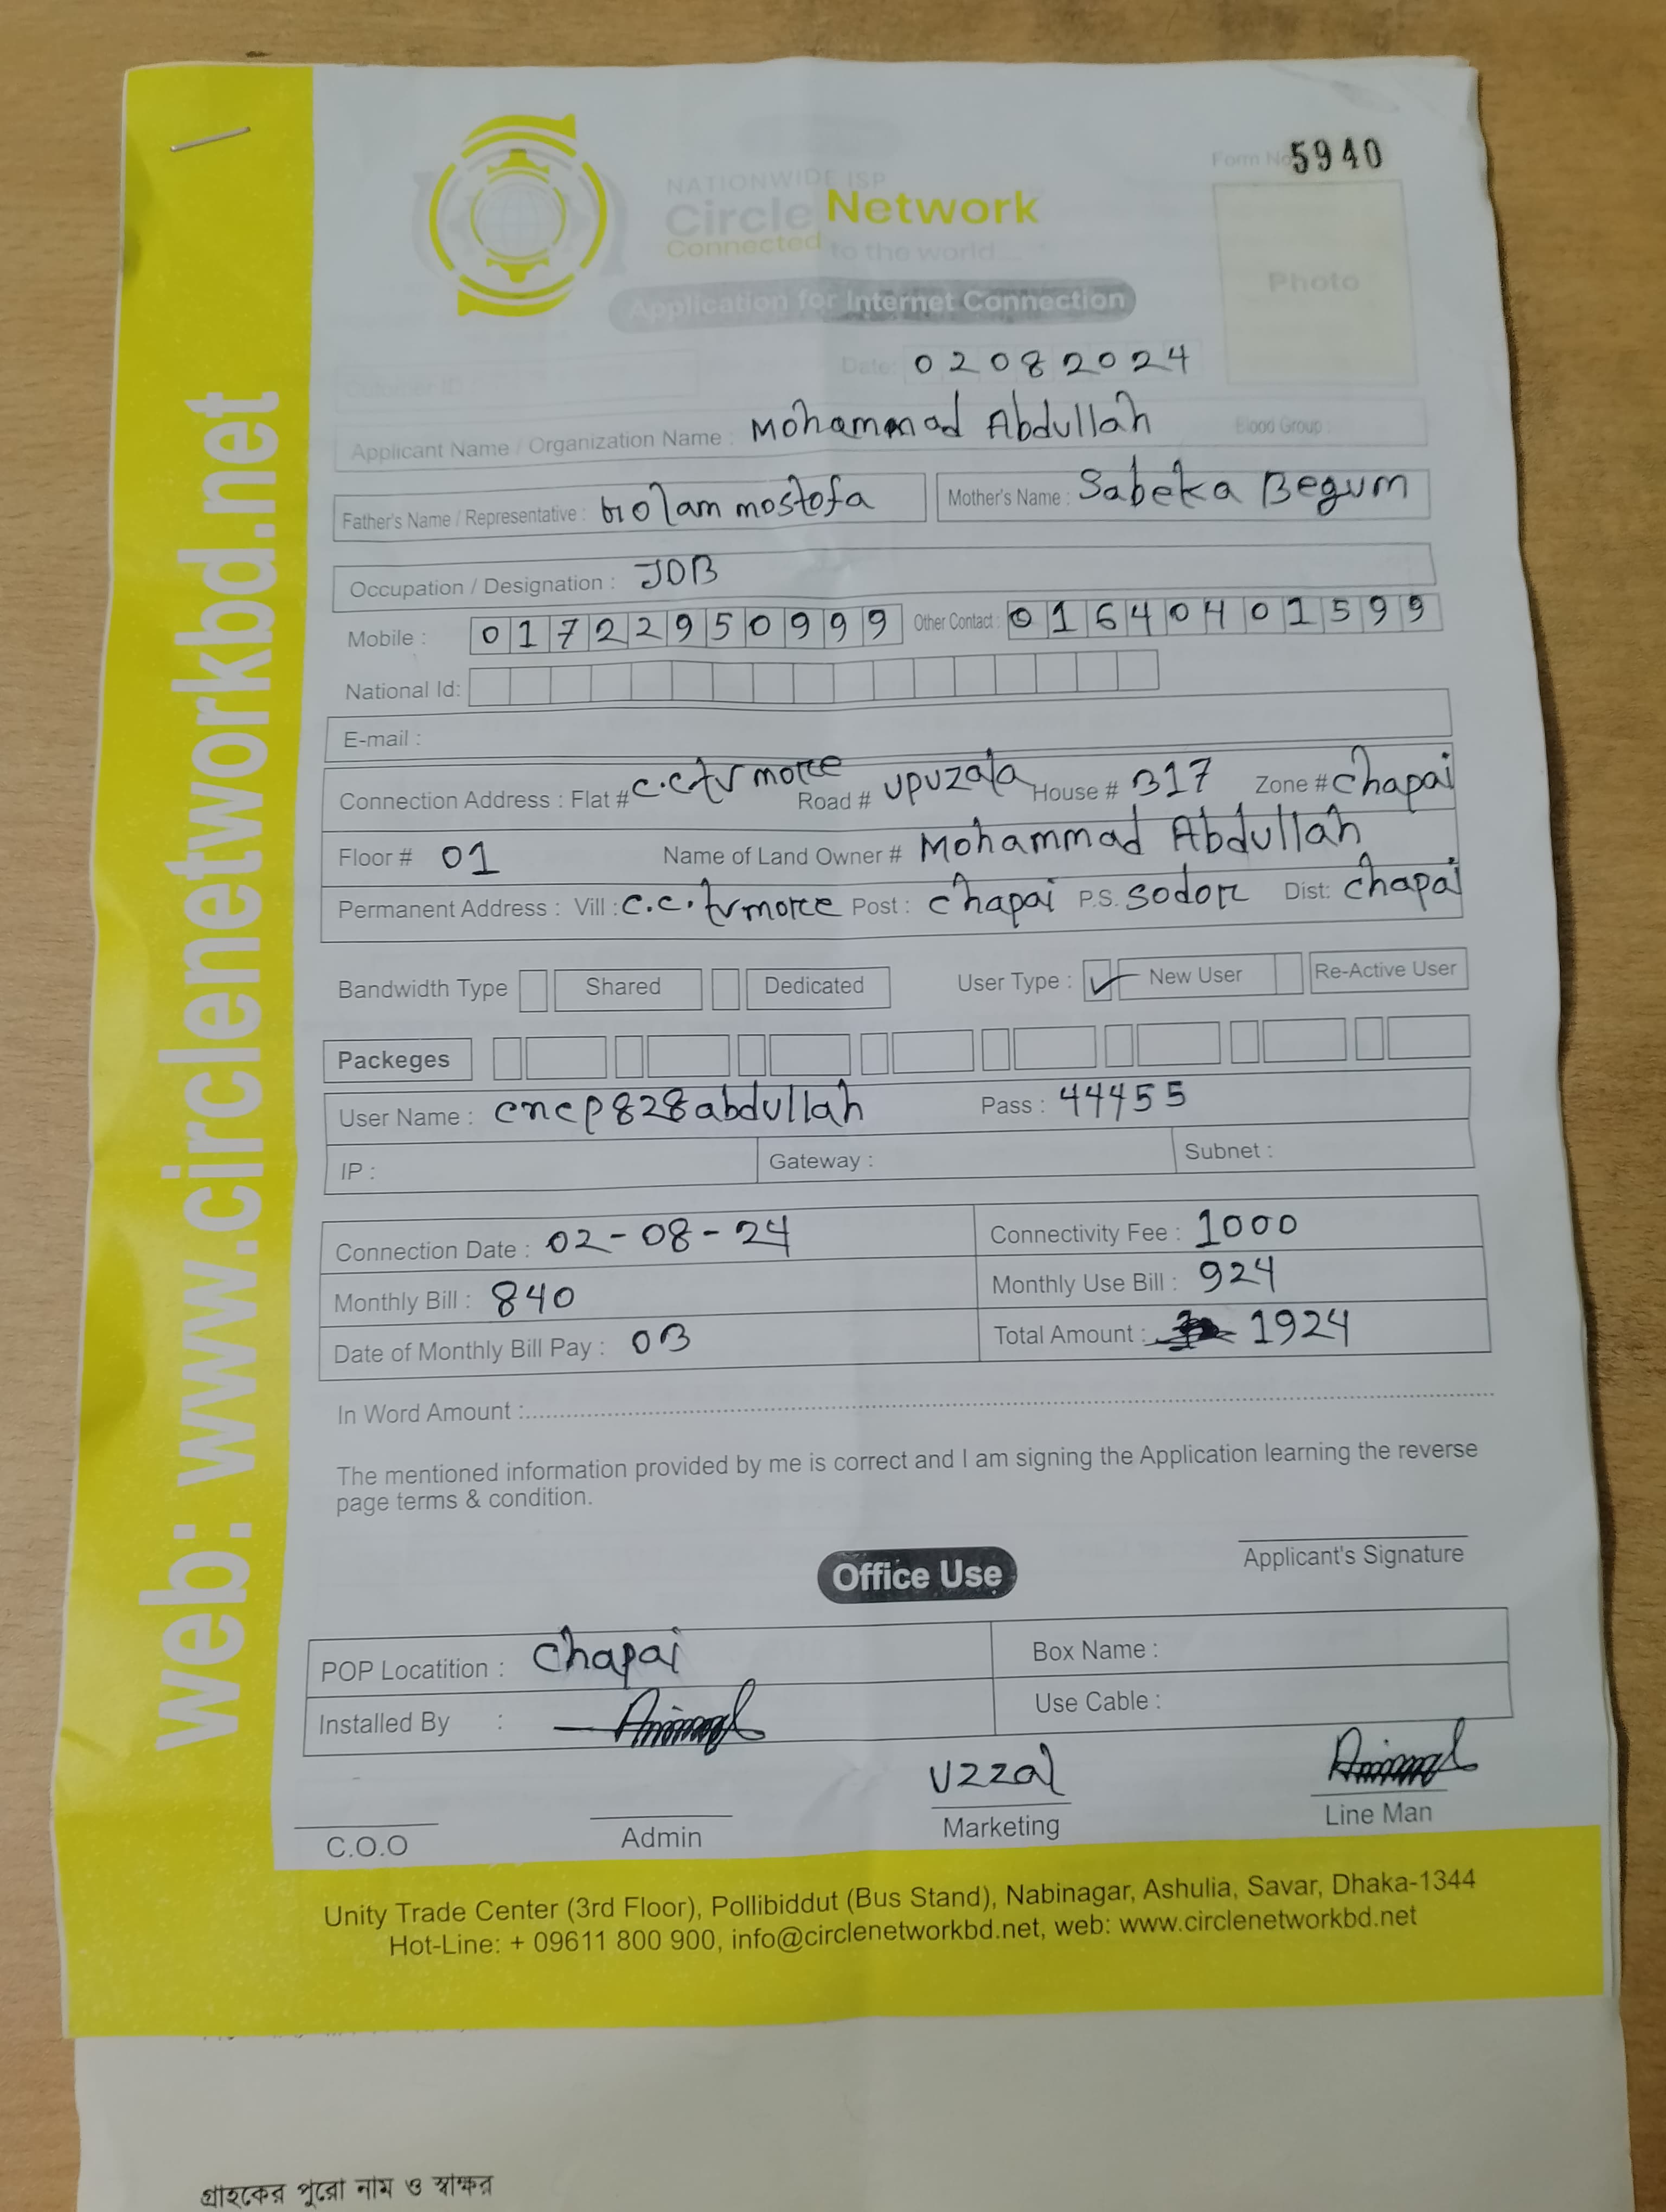 web: www.circlenetworkbd.net
Form No 5940
NATIONWIDE ISP
Circle Network
Connected to the world...
Photo
Application for Internet Connection
Date: 02082024
Customer ID
Applicant Name / Organization Name : Mohammad Abdullah Blood Group :
Father's Name / Representative : Golam mostofa Mother's Name : Sabeka Begum
Occupation / Designation : JOB
Mobile : 01722950999 Other Contact : 01640401599
National Id:
E-mail :
Connection Address : Flat # c.c.tv more Road # upuzala House # 317 Zone # chapai
Floor # 01 Name of Land Owner # Mohammad Abdullah
Permanent Address : Vill : c.c.tv more Post : chapai P.S. sodor Dist: chapai
Bandwidth Type Shared Dedicated User Type : ✓ New User Re-Active User
Packeges
User Name : cncp828abdullah Pass : 44455
IP : Gateway : Subnet :
Connection Date : 02-08-24 Connectivity Fee : 1000
Monthly Bill : 840 Monthly Use Bill : 924
Date of Monthly Bill Pay : 03 Total Amount : 1924
In Word Amount :
The mentioned information provided by me is correct and I am signing the Application learning the reverse
page terms & condition.
Applicant's Signature
Office Use
POP Locatition : chapai Box Name :
Installed By : Use Cable :
Uzzal
C.O.O Admin Marketing Line Man
Unity Trade Center (3rd Floor), Pollibiddut (Bus Stand), Nabinagar, Ashulia, Savar, Dhaka-1344
Hot-Line: + 09611 800 900, info@circlenetworkbd.net, web: www.circlenetworkbd.net
গ্রাহকের পুরো নাম ও স্বাক্ষর